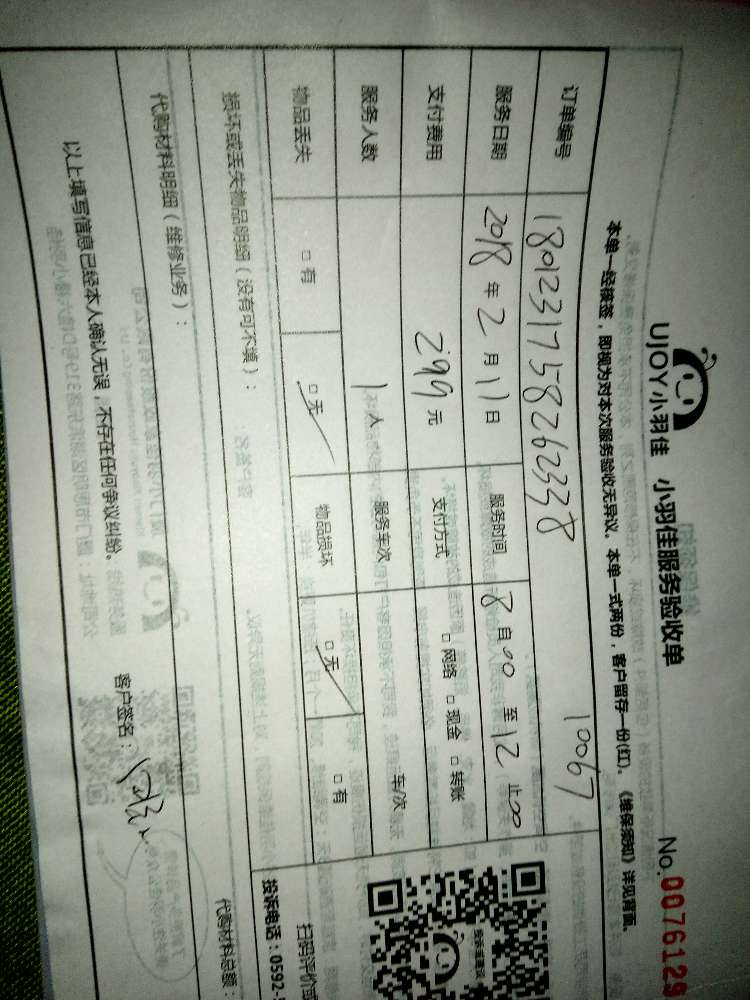 UJOY小羽佳 小羽佳服务验收单 No.0076129
本单一经接签,即视为对本次服务验收无异议。本单一式两份,客户留存一份(红)。《维保须知》详见背面。
订单编号 1801231758262338 10067
服务日期 2018年2月11日 服务时间 8自00至12止00
支付费用 299元 支付方式 □网络 □现金 □转账
服务人数 1人 服务车次 车/次
物品丢失 □有 □无 物品损坏 □无 □有
损坏或丢失物品明细(没有可不填):
扫码评价
投诉电话:0592-
代购材料明细(维修业务):
代购材料总额:
以上填写信息已经本人确认无误,不存在任何争议纠纷。 客户签名: